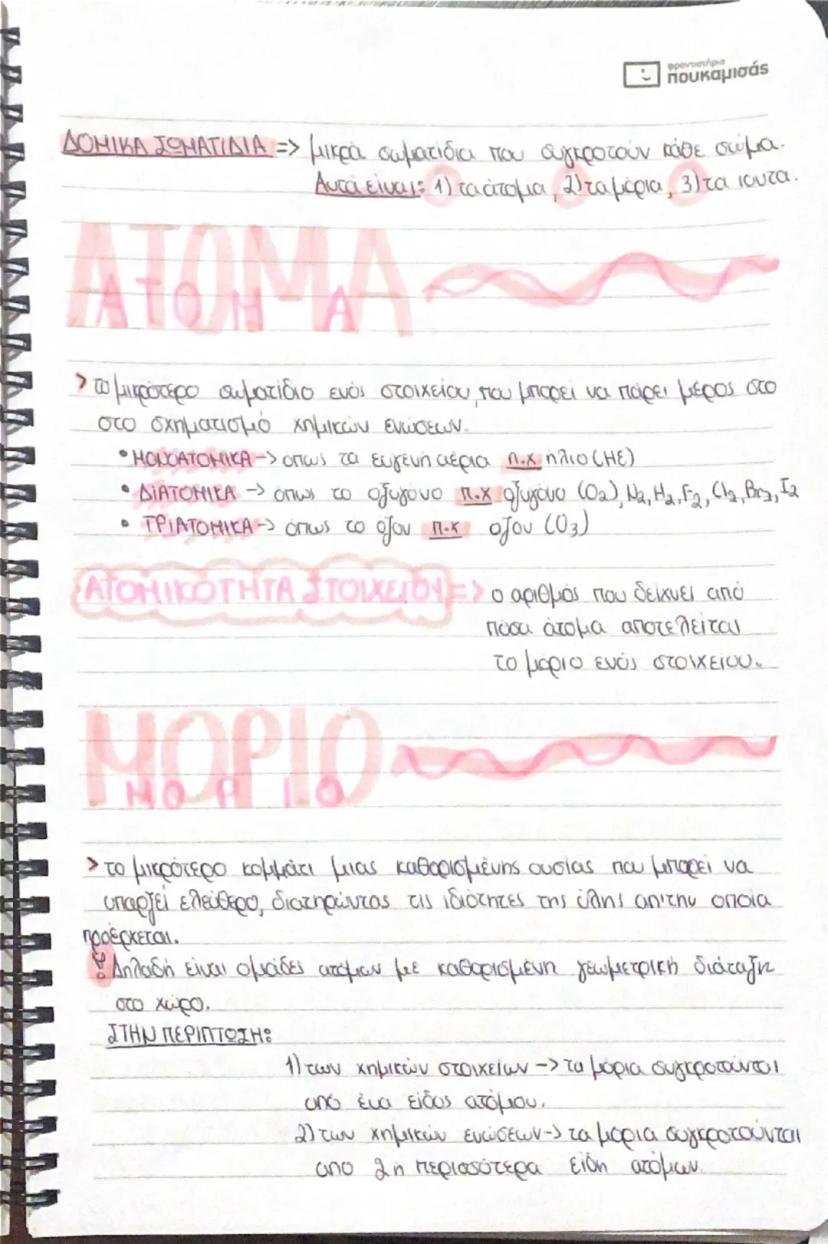 φροντιστήριο
πουκαμισάς
ΔΟΜΙΚΑ ΣΩΜΑΤΙΔΙΑ => μικρά σωματίδια που συγκροτούν κάθε σώμα.
Αυτά είναι: 1) τα άτομα, 2) τα μόρια, 3) τα ιόντα.
ΑΤΟΜΑ
ΑΤΟΜΑ
> το μικρότερο σωματίδιο ενός στοιχείου, που μπορεί να πάρει μέρος στο
στο σχηματισμό χημικών ενώσεων.
• ΜΟΝΟΑΤΟΜΙΚΑ -> όπως τα ευγενή αέρια π.χ ήλιο (HE)
• ΔΙΑΤΟΜΙΚΑ -> όπως το οξυγόνο π.χ οξυγόνο (O₂), N₂, H₂, F₂, Cl₂, Br₂, I₂
• ΤΡΙΑΤΟΜΙΚΑ -> όπως το όζον π.χ όζον (O₃)
ΑΤΟΜΙΚΟΤΗΤΑ ΣΤΟΙΧΕΙΟΥ => ο αριθμός που δείχνει από
πόσα άτομα αποτελείται
το μόριο ενός στοιχείου.
ΜΟΡΙΟ
ΜΟΡΙΟ
> το μικρότερο κομμάτι μιας καθορισμένης ουσίας που μπορεί να
υπάρξει ελεύθερο, διατηρώντας τις ιδιότητες της ύλης απ'την οποία
προέρχεται.
! Δηλαδή είναι ομάδες ατόμων με καθορισμένη γεωμετρική διάταξη
στο χώρο.
ΣΤΗΝ ΠΕΡΙΠΤΩΣΗ:
1) των χημικών στοιχείων -> τα μόρια συγκροτούνται
από ένα είδος ατόμου.
2) των χημικών ενώσεων -> τα μόρια συγκροτούνται
απο 2 ή περισσότερα είδη ατόμων.